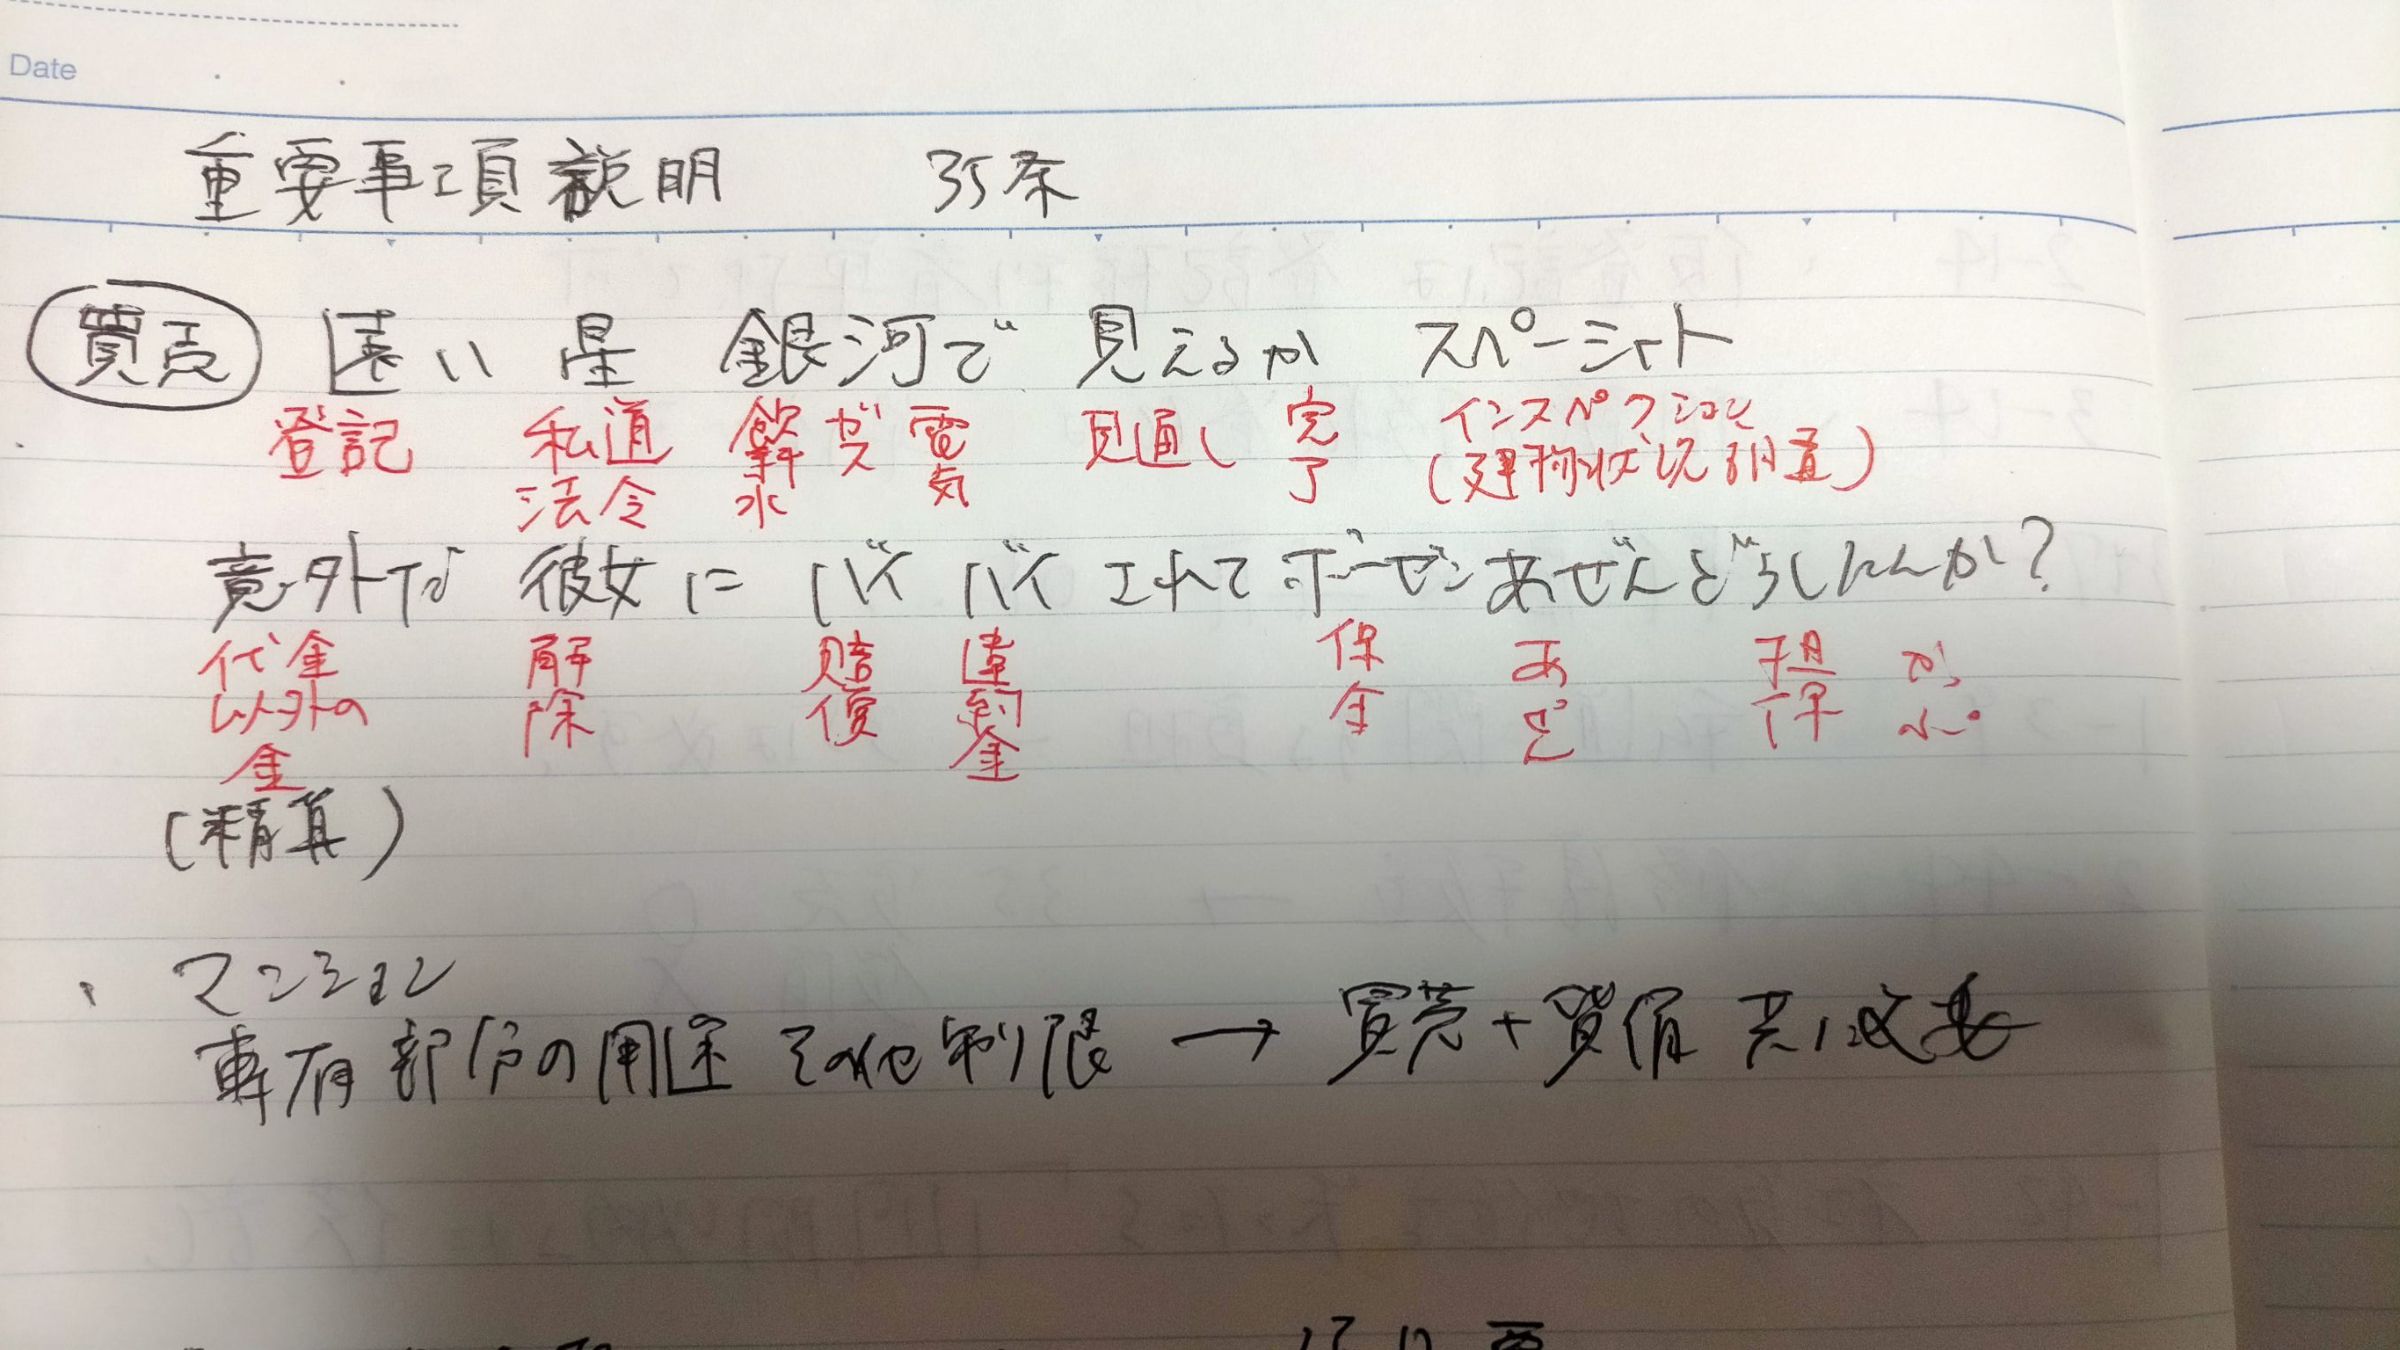 Date
重要事項説明 35条
買売 遠い 星 銀河で 見えるか スペーシャト
登記 私道 飲料水 ガス 電気 見通し 完了 インスペクション
法令 (建物状況調査)
意外な 彼女に バイ バイ されて ボーゼン あぜんどうしたんか?
代金以外の金 解除 賠償 違約金 保全 あぜ 担保 かっぷ
(精算)
、マンション
専有部分の用途その他制限 → 買売+賃借 共に必要